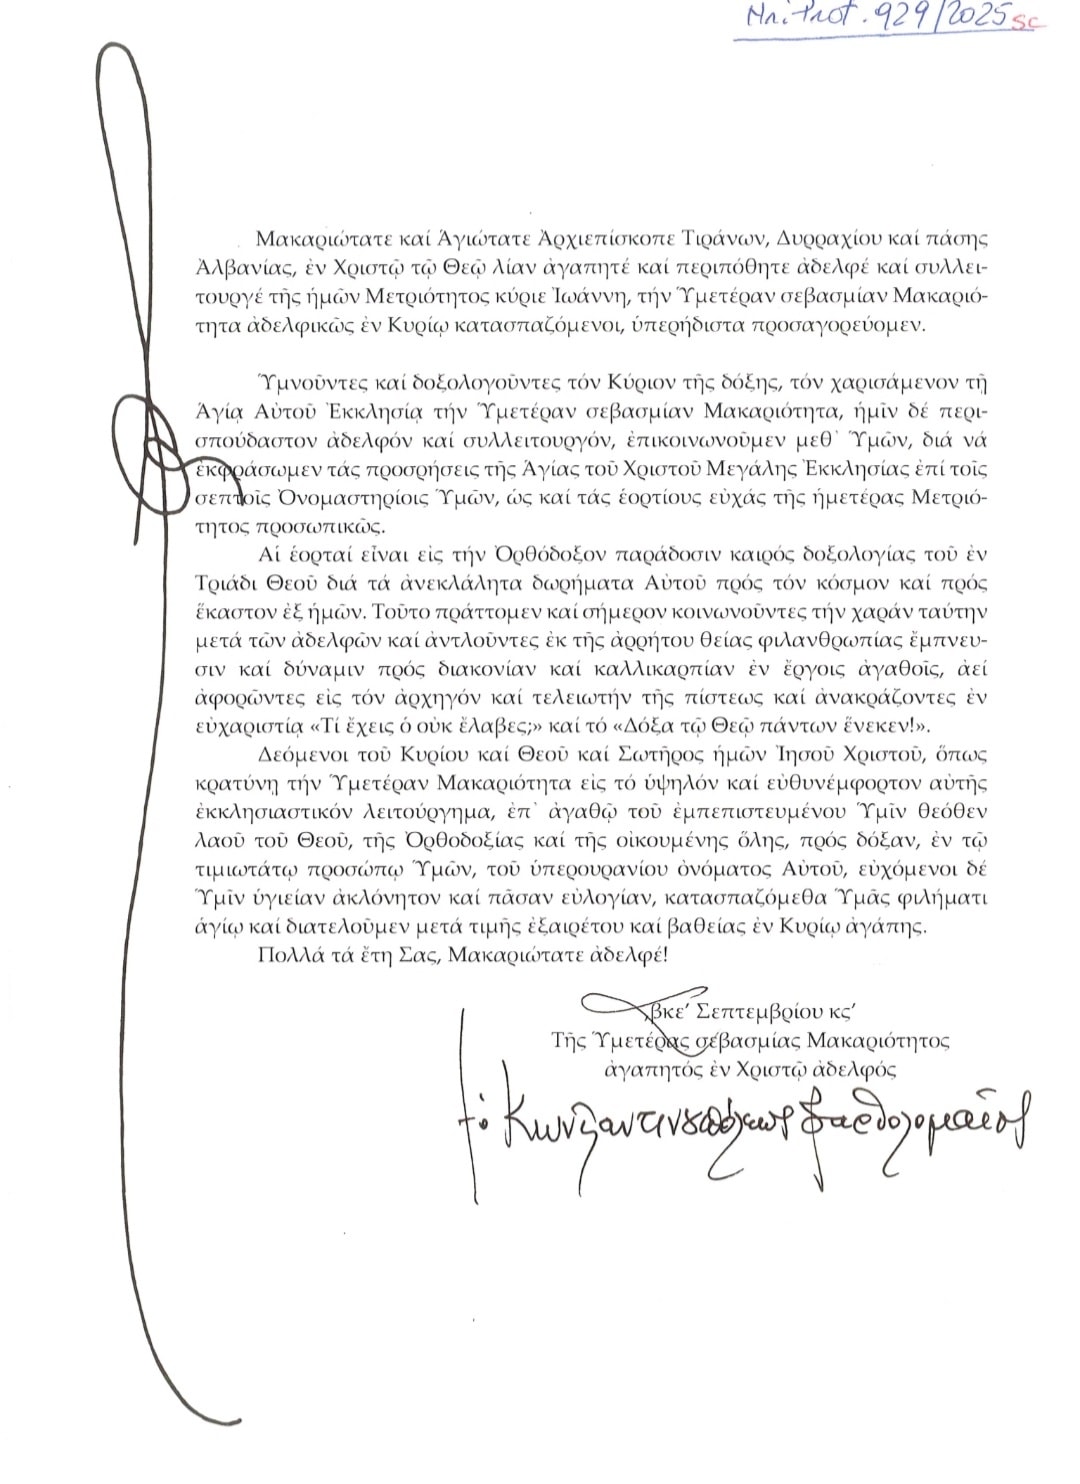 Nr. Prot. 929/2025 SC
Μακαριώτατε καί Ἁγιώτατε Ἀρχιεπίσκοπε Τιράνων, Δυρραχίου καί πάσης
Ἀλβανίας, ἐν Χριστῷ τῷ Θεῷ λίαν ἀγαπητέ καί περιπόθητε ἀδελφέ καί συλλει-
τουργέ τῆς ἡμῶν Μετριότητος κύριε Ἰωάννη, τήν Ὑμετέραν σεβασμίαν Μακαριό-
τητα ἀδελφικῶς ἐν Κυρίῳ κατασπαζόμενοι, ὑπερήδιστα προσαγορεύομεν.
Ὑμνοῦντες καί δοξολογοῦντες τόν Κύριον τῆς δόξης, τόν χαρισάμενον τῇ
Ἁγίᾳ Αὐτοῦ Ἐκκλησίᾳ τήν Ὑμετέραν σεβασμίαν Μακαριότητα, ἡμῖν δέ περι-
σπούδαστον ἀδελφόν καί συλλειτουργόν, ἐπικοινωνοῦμεν μεθ᾽ Ὑμῶν, διά νά
ἐκφράσωμεν τάς προσρήσεις τῆς Ἁγίας τοῦ Χριστοῦ Μεγάλης Ἐκκλησίας ἐπί τοῖς
σεπτοῖς Ὀνομαστηρίοις Ὑμῶν, ὡς καί τάς ἑορτίους εὐχάς τῆς ἡμετέρας Μετριό-
τητος προσωπικῶς.
Αἱ ἑορταί εἶναι εἰς τήν Ὀρθόδοξον παράδοσιν καιρός δοξολογίας τοῦ ἐν
Τριάδι Θεοῦ διά τά ἀνεκλάλητα δωρήματα Αὐτοῦ πρός τόν κόσμον καί πρός
ἕκαστον ἐξ ἡμῶν. Τοῦτο πράττομεν καί σήμερον κοινωνοῦντες τήν χαράν ταύτην
μετά τῶν ἀδελφῶν καί ἀντλοῦντες ἐκ τῆς ἀρρήτου θείας φιλανθρωπίας ἔμπνευ-
σιν καί δύναμιν πρός διακονίαν καί καλλικαρπίαν ἐν ἔργοις ἀγαθοῖς, ἀεί
ἀφορῶντες εἰς τόν ἀρχηγόν καί τελειωτήν τῆς πίστεως καί ἀνακράζοντες ἐν
εὐχαριστίᾳ «Τί ἔχεις ὁ οὐκ ἔλαβες;» καί τό «Δόξα τῷ Θεῷ πάντων ἕνεκεν!».
Δεόμενοι τοῦ Κυρίου καί Θεοῦ καί Σωτῆρος ἡμῶν Ἰησοῦ Χριστοῦ, ὅπως
κρατύνῃ τήν Ὑμετέραν Μακαριότητα εἰς τό ὑψηλόν καί εὐθυνέμφορτον αὐτῆς
ἐκκλησιαστικόν λειτούργημα, ἐπ᾽ ἀγαθῷ τοῦ ἐμπεπιστευμένου Ὑμῖν θεόθεν
λαοῦ τοῦ Θεοῦ, τῆς Ὀρθοδοξίας καί τῆς οἰκουμένης ὅλης, πρός δόξαν, ἐν τῷ
τιμιωτάτῳ προσώπῳ Ὑμῶν, τοῦ ὑπερουρανίου ὀνόματος Αὐτοῦ, εὐχόμενοι δέ
Ὑμῖν ὑγιείαν ἀκλόνητον καί πᾶσαν εὐλογίαν, κατασπαζόμεθα Ὑμᾶς φιλήματι
ἁγίῳ καί διατελοῦμεν μετά τιμῆς ἐξαιρέτου καί βαθείας ἐν Κυρίῳ ἀγάπης.
Πολλά τά ἔτη Σας, Μακαριώτατε ἀδελφέ!
͵βκε΄ Σεπτεμβρίου κς΄
Τῆς Ὑμετέρας σεβασμίας Μακαριότητος
ἀγαπητός ἐν Χριστῷ ἀδελφός
† ὁ Κωνσταντινουπόλεως Βαρθολομαῖος